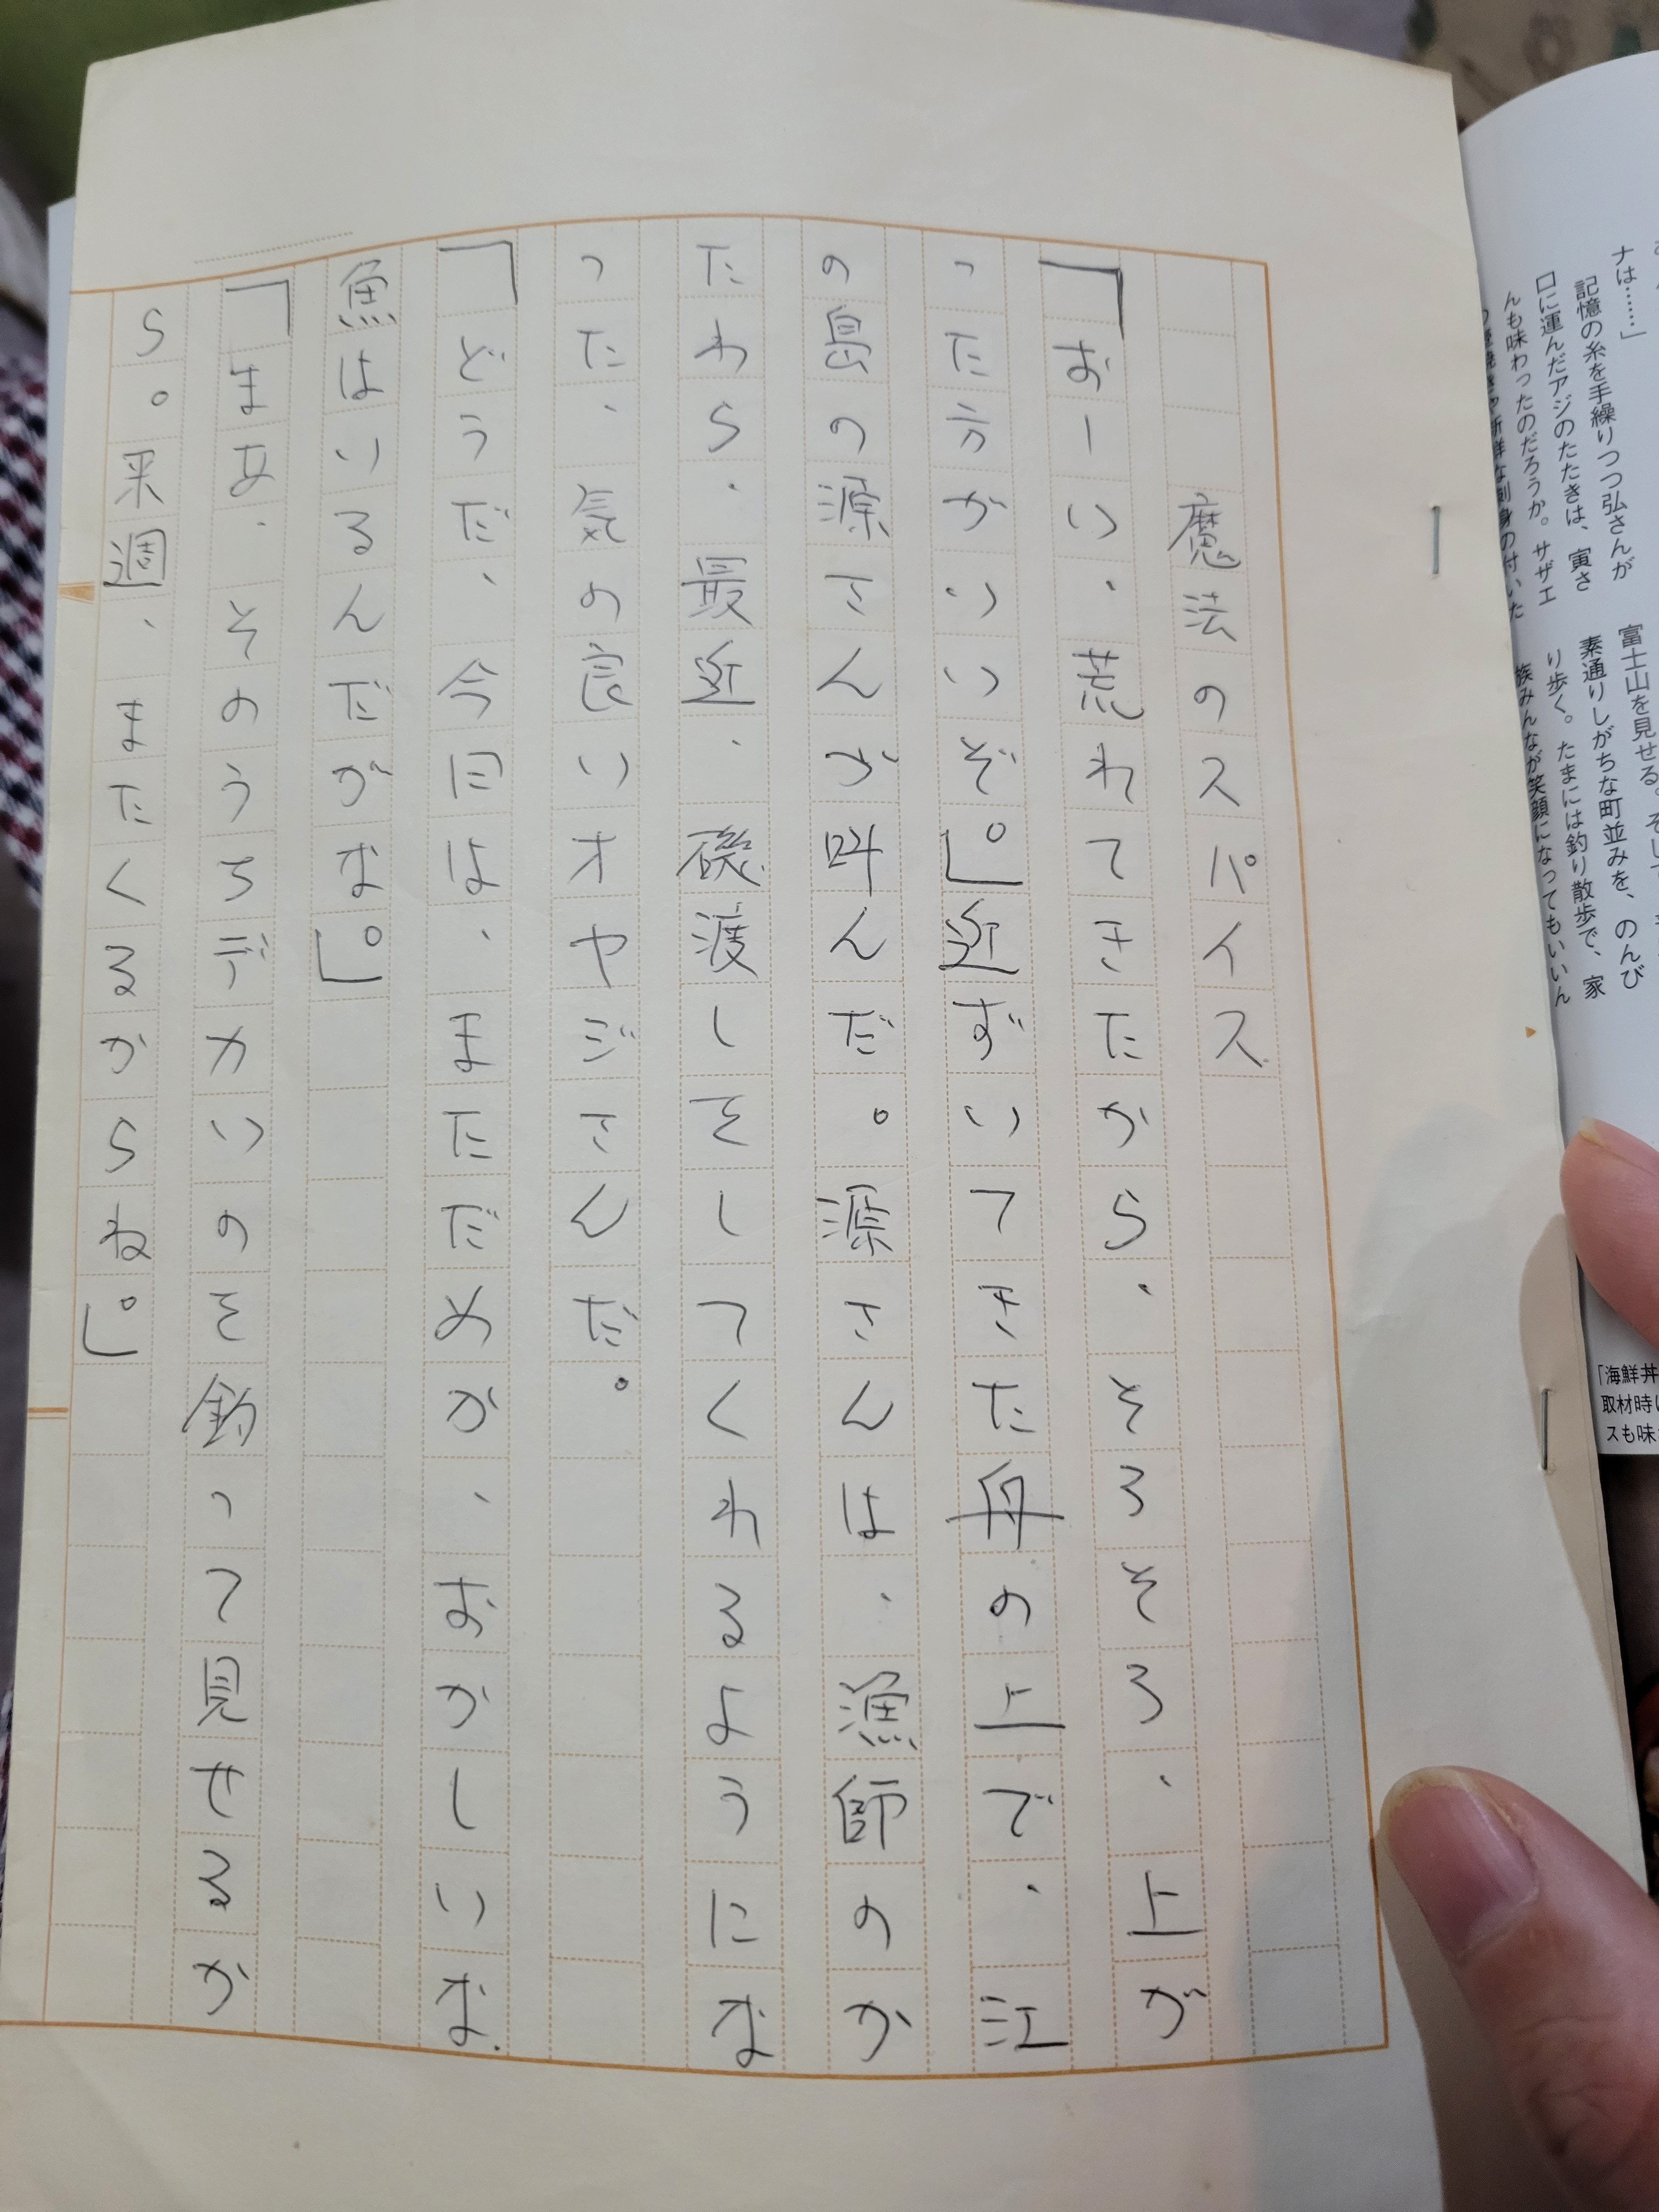 ナは……」
記憶の糸を手繰りつつ弘さんが
口に運んだアジのたたきは、寅さ
んも味わったのだろうか。サザエ
新鮮な刺身の付いた
富士山を見せる。そして
素通りしがちな町並みを、のんび
り歩く。たまには釣り散歩で、家
族みんなが笑顔になってもいいん
「海鮮丼
取材時
スも味
魔法のスパイス
「おーい、荒れてきたから、そろそろ、上が
った方がいいぞ。」近ずいてきた舟の上で、江
の島の源さんが叫んだ。源さんは、漁師のか
たわら、最近、磯渡しをしてくれるようにな
った、気の良いオヤジさんだ。
「どうだ、今日は、まただめか、おかしいな、
魚はいるんだがな。」
「まあ、そのうちデカいのを釣って見せるか
ら。来週、またくるからね。」